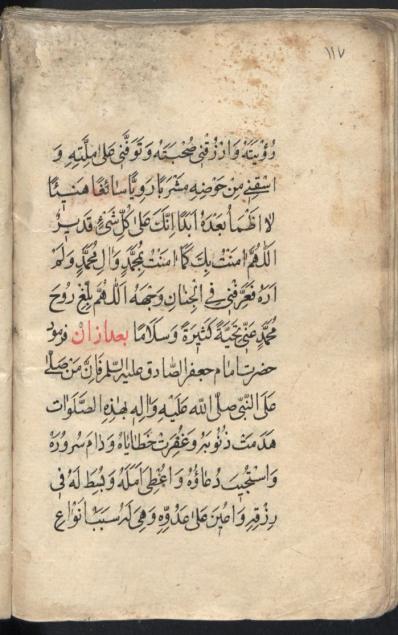 ١١٧
رُؤْيَتَهُ وَارْزُقْنِى صُحْبَتَهُ وَتَوَفَّنِى عَلىٰ مِلَّتِهِ وَ
اسْقِنِى مِنْ حَوْضِهِ مَشْرَبًا رَوِيًّا سَائِغًا هَنِيئًا
لَا اَظْمَأُ بَعْدَهُ اَبَدًا اِنَّكَ عَلىٰ كُلِّ شَىْءٍ قَدِيرٌ
اَللّٰهُمَّ اٰمَنْتُ بِكَ كَمَا اٰمَنْتُ بِمُحَمَّدٍ وَاٰلِ مُحَمَّدٍ وَلَمْ
اَرَهُ فَعَرِّفْنِى فِى الْجِنَانِ وَجْهَهُ اَللّٰهُمَّ بَلِّغْ رُوحَ
مُحَمَّدٍ عَنِّى تَحِيَّةً كَثِيرَةً وَسَلَامًا بعد ازان فرمود
حضرت امام جعفر الصادق عليه السلم فَاِنَّ مَنْ صَلّٰى
عَلَى النَّبِىِّ صَلَّى اللّٰهُ عَلَيْهِ وَاٰلِهِ بِهٰذِهِ الصَّلَوَاتِ
هُدِمَتْ ذُنُوبُهُ وَغُفِرَتْ خَطَايَاهُ وَدَامَ سُرُورُهُ
وَاسْتُجِيبَ دُعَاؤُهُ وَاُعْطِىَ اَمَلَهُ وَبُسِطَ لَهُ فِى
رِزْقِهِ وَاُعِينَ عَلىٰ عَدُوِّهِ وَهِىَ لَهُ سَبَبُ اَنْوَاعِ